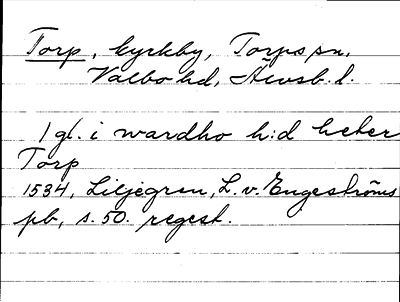 Torp, kyrkby, Torps sn,
Valbo hd, Älvsb. l.
1 gl. i wardho h:d heter
Torp
1534, Liljegren, L. v. Engeströms
pb, s. 50. regest.